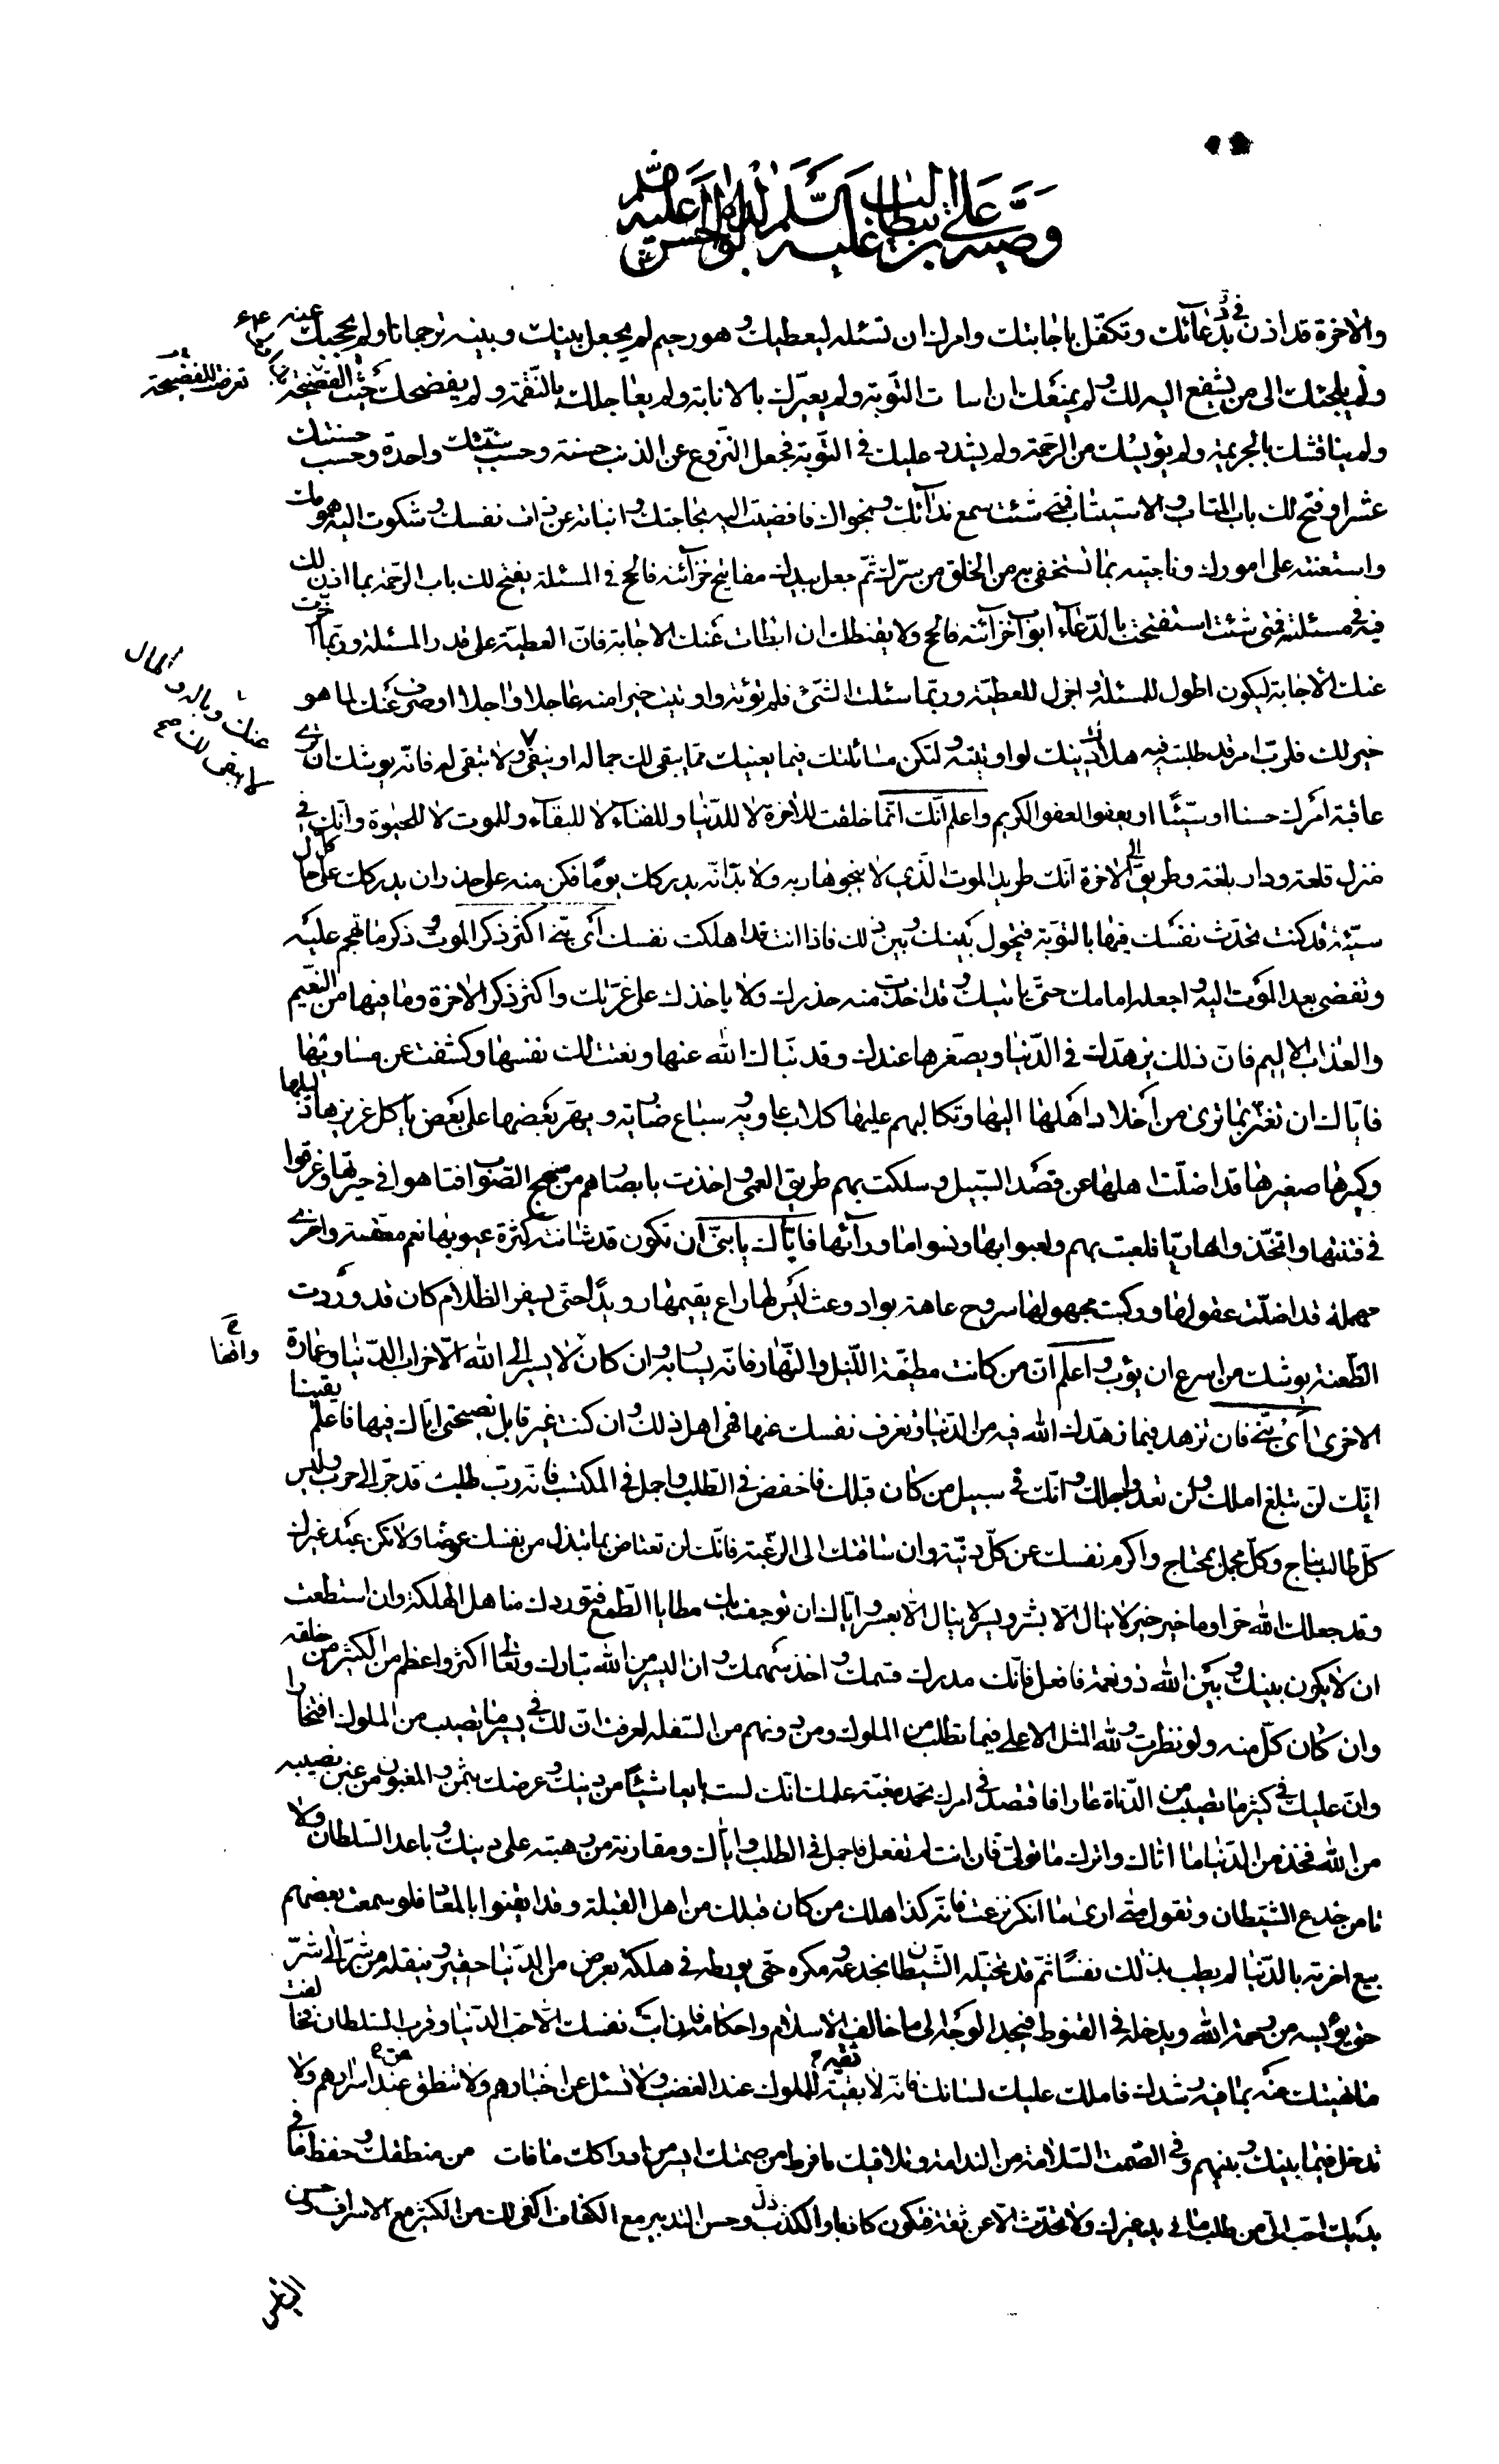 وصية علي بن أبي طالب عليه السلم لولده الحسن عليه
والاخرة قد اذن في دعائك وتكفل باجابتك وامرك ان تسئله ليعطيك وهو رحيم لم يجعل بينك وبينه ترجمانا ولم يحجبك عنه
ولم يلجئك الى من يشفع اليه لك ولم يمنعك ان اسات التوبة ولم يعيرك بالانابة ولم يعاجلك بالنقمة ولم يفضحك حيث الفضيحة
تعرضت للفضيحة
ولم يناقشك بالجريمة ولم يؤيسك من الرحمة ولم يشدد عليك في التوبة فجعل النزوع عن الذنب حسنة وحسب سيئتك واحدة وحسب حسنتك
عشرا وفتح لك باب المتاب والاستيتاب فمتى شئت سمع ندائك ونجواك فافضيت اليه بحاجتك وانباته عن ذات نفسك وشكوت اليه همومك
واستعنته على امورك وناجيته بما تستخفي به من الخلق من سرك ثم جعل بيدك مفاتيح خزائنه فالح في المسئلة يفتح لك باب الرحمة بما اذن لك
فيه في مسئلته فمتى شئت استفتحت بالدعاء ابواب خزائنه فالح ولا يقنطك ان ابطات عنك الاجابة فان العطية على قدر المسئلة وربما اخرت
عنك الاجابة ليكون اطول للمسئلة واجزل للعطية وربما سئلت الشئ فلم تؤته واوتيت خيرا منه عاجلا واجلا او صرف عنك لما هو
عنك وباله والمال
لا يبقى لك صح
خير لك فلرب امر قد طلبته فيه هلاك دينك لو اوتيته ولتكن مسائلتك فيما يعنيك مما يبقى لك جماله او ينفى ولا تبقى له فانه يوشك ان ترى
عاقبة امرك حسنا او سيئا او يعفو العفو الكريم واعلم انك انما خلقت للاخرة لا للدنيا وللفناء لا للبقاء وللموت لا للحيوة وانك في
منزل قلعة ودار بلغة وطريق الى الاخرة انك طريد الموت الذي لا ينجو هاربه ولا بد انه يدركك يوما فكن منه على حذر ان يدركك على حال
سيئة قد كنت تحدث نفسك فيها بالتوبة فيحول بينك وبين ذلك فاذا انت قد اهلكت نفسك اى بنى اكثر ذكر الموت وذكر ما تهجم عليه
وتفضى بعد الموت اليه واجعله امامك حتى ياتيك وقد اخذت منه حذرك ولا ياخذك على غرتك واكثر ذكر الاخرة وما فيها من النعيم
والعذاب الاليم فان ذلك يزهدك في الدنيا ويصغرها عندك وقد نباك الله عنها ونعتت لك نفسها وكشفت عن مساويها
فاياك ان تغتر بما ترى من اخلاد اهلها اليها وتكالبهم عليها كلاب عاوية وسباع ضارية ويهر بعضها على بعض ياكل عزيزها ذليلها
وكبيرها صغيرها قد اضلت اهلها عن قصد السبيل وسلكت بهم طريق العمى واخذت بابصارهم من منهج الصواب فتاهوا في حيرتها وغرقوا
في فتنتها واتخذوها ربا فلعبت بهم ولعبوا بها ونسوا ما ورائها فاياك يا بنى ان تكون قد شانته كثرة عيوبها نعم معقلة واخرى
مهملة قد اضلت عقولها وركبت مجهولها سروح عاهة بواد وعث ليس لها راع يقيمها رويدا حتى يسفر الظلام كان قد وردت
الظعينة يوشك من اسرع ان يؤب واعلم ان من كانت مطيته الليل والنهار فانه يسار به وان كان لا يسير ابى الله الا خراب الدنيا وعمارة
الاخرى اى بنى فان تزهد فيما زهدك الله فيه من الدنيا وتعرف نفسك عنها فهي اهل ذلك وان كنت غير قابل نصيحتى اياك فيها فاعلم يقينا
انك لن تبلغ املك ولن تعدو اجلك وانك في سبيل من كان قبلك فاخفض في الطلب واجمل في المكتسب فانه رب طلب قد جر الى حرب وليس
كل طالب بناج وكل مجمل بمحتاج واكرم نفسك عن كل دنية وان ساقتك الى الرغبة فانك لن تعتاض بما تبذل من نفسك عوضا ولا تكن عبد غيرك
وقد جعلك الله حرا وما خير خير لا ينال الا بشر ويسر لا ينال الا بعسر واياك ان توجف بك مطايا الطمع فتوردك مناهل الهلكة وان استطعت
ان لا يكون بينك وبين الله ذو نعمة فافعل فانك مدرك قسمك واخذ سهمك وان اليسير من الله تبارك وتعالى اكثر واعظم من الكثير من خلقه
وان كان كل منه ولو نظرت ولله المثل الاعلى فيما تطلب من الملوك ومن دونهم من السفلة لعرفت ان لك في يسير ما تصيب من الملوك افتخارا
وان عليك في كثير ما تصيب من الدناة عارا فاقتصد في امرك تحمد مغبة علمك انك لست بايعا شيئا من دينك وعرضك بثمن والمغبون من غبن نصيبه
من الله فخذ من الدنيا ما اتاك واترك ما تولى فان انت لم تفعل فاجمل في الطلب واياك ومقارنة من رهبته على دينك وباعد السلطان ولا
تامن خدع الشيطان وتقول متى ارى ما انكر نزعت فانه كذا هلك من كان قبلك من اهل القبلة وقد ايقنوا بالمعاد فلو سمعت بعضهم
بيع اخرته بالدنيا لم يطب بذلك نفسا ثم قد يتخبله الشيطان بخدعه ومكره حتى يورطه في هلكة بعرض من الدنيا حقير وينقله من شر الى شر
حتى يؤيسه من رحمة الله ويدخله في القنوط فيجد الوجه الى ما خالف الاسلام واحكامه فان ابت نفسك الا حب الدنيا وقرب السلطان فخالفت
ما نهيتك عنه بما فيه رشدك فاملك عليك لسانك فانه لا بقية للملوك عند الغضب ولا تسئل عن اخبارهم ولا تنطق عند اسرارهم ولا
تدخل فيما بينك وبينهم وفي الصمت السلامة من الندامة وتلافيك ما فرط من صمتك ايسر من ادراكك ما فات من منطقك وحفظ ما في
يديك احب الى من طلب ما في يد غيرك ولا تحدث الا عن ثقة فتكون كاذبا والكذب ذل وحسن التدبير مع الكفاف اكفى لك من الكثير مع الاسراف وحسن